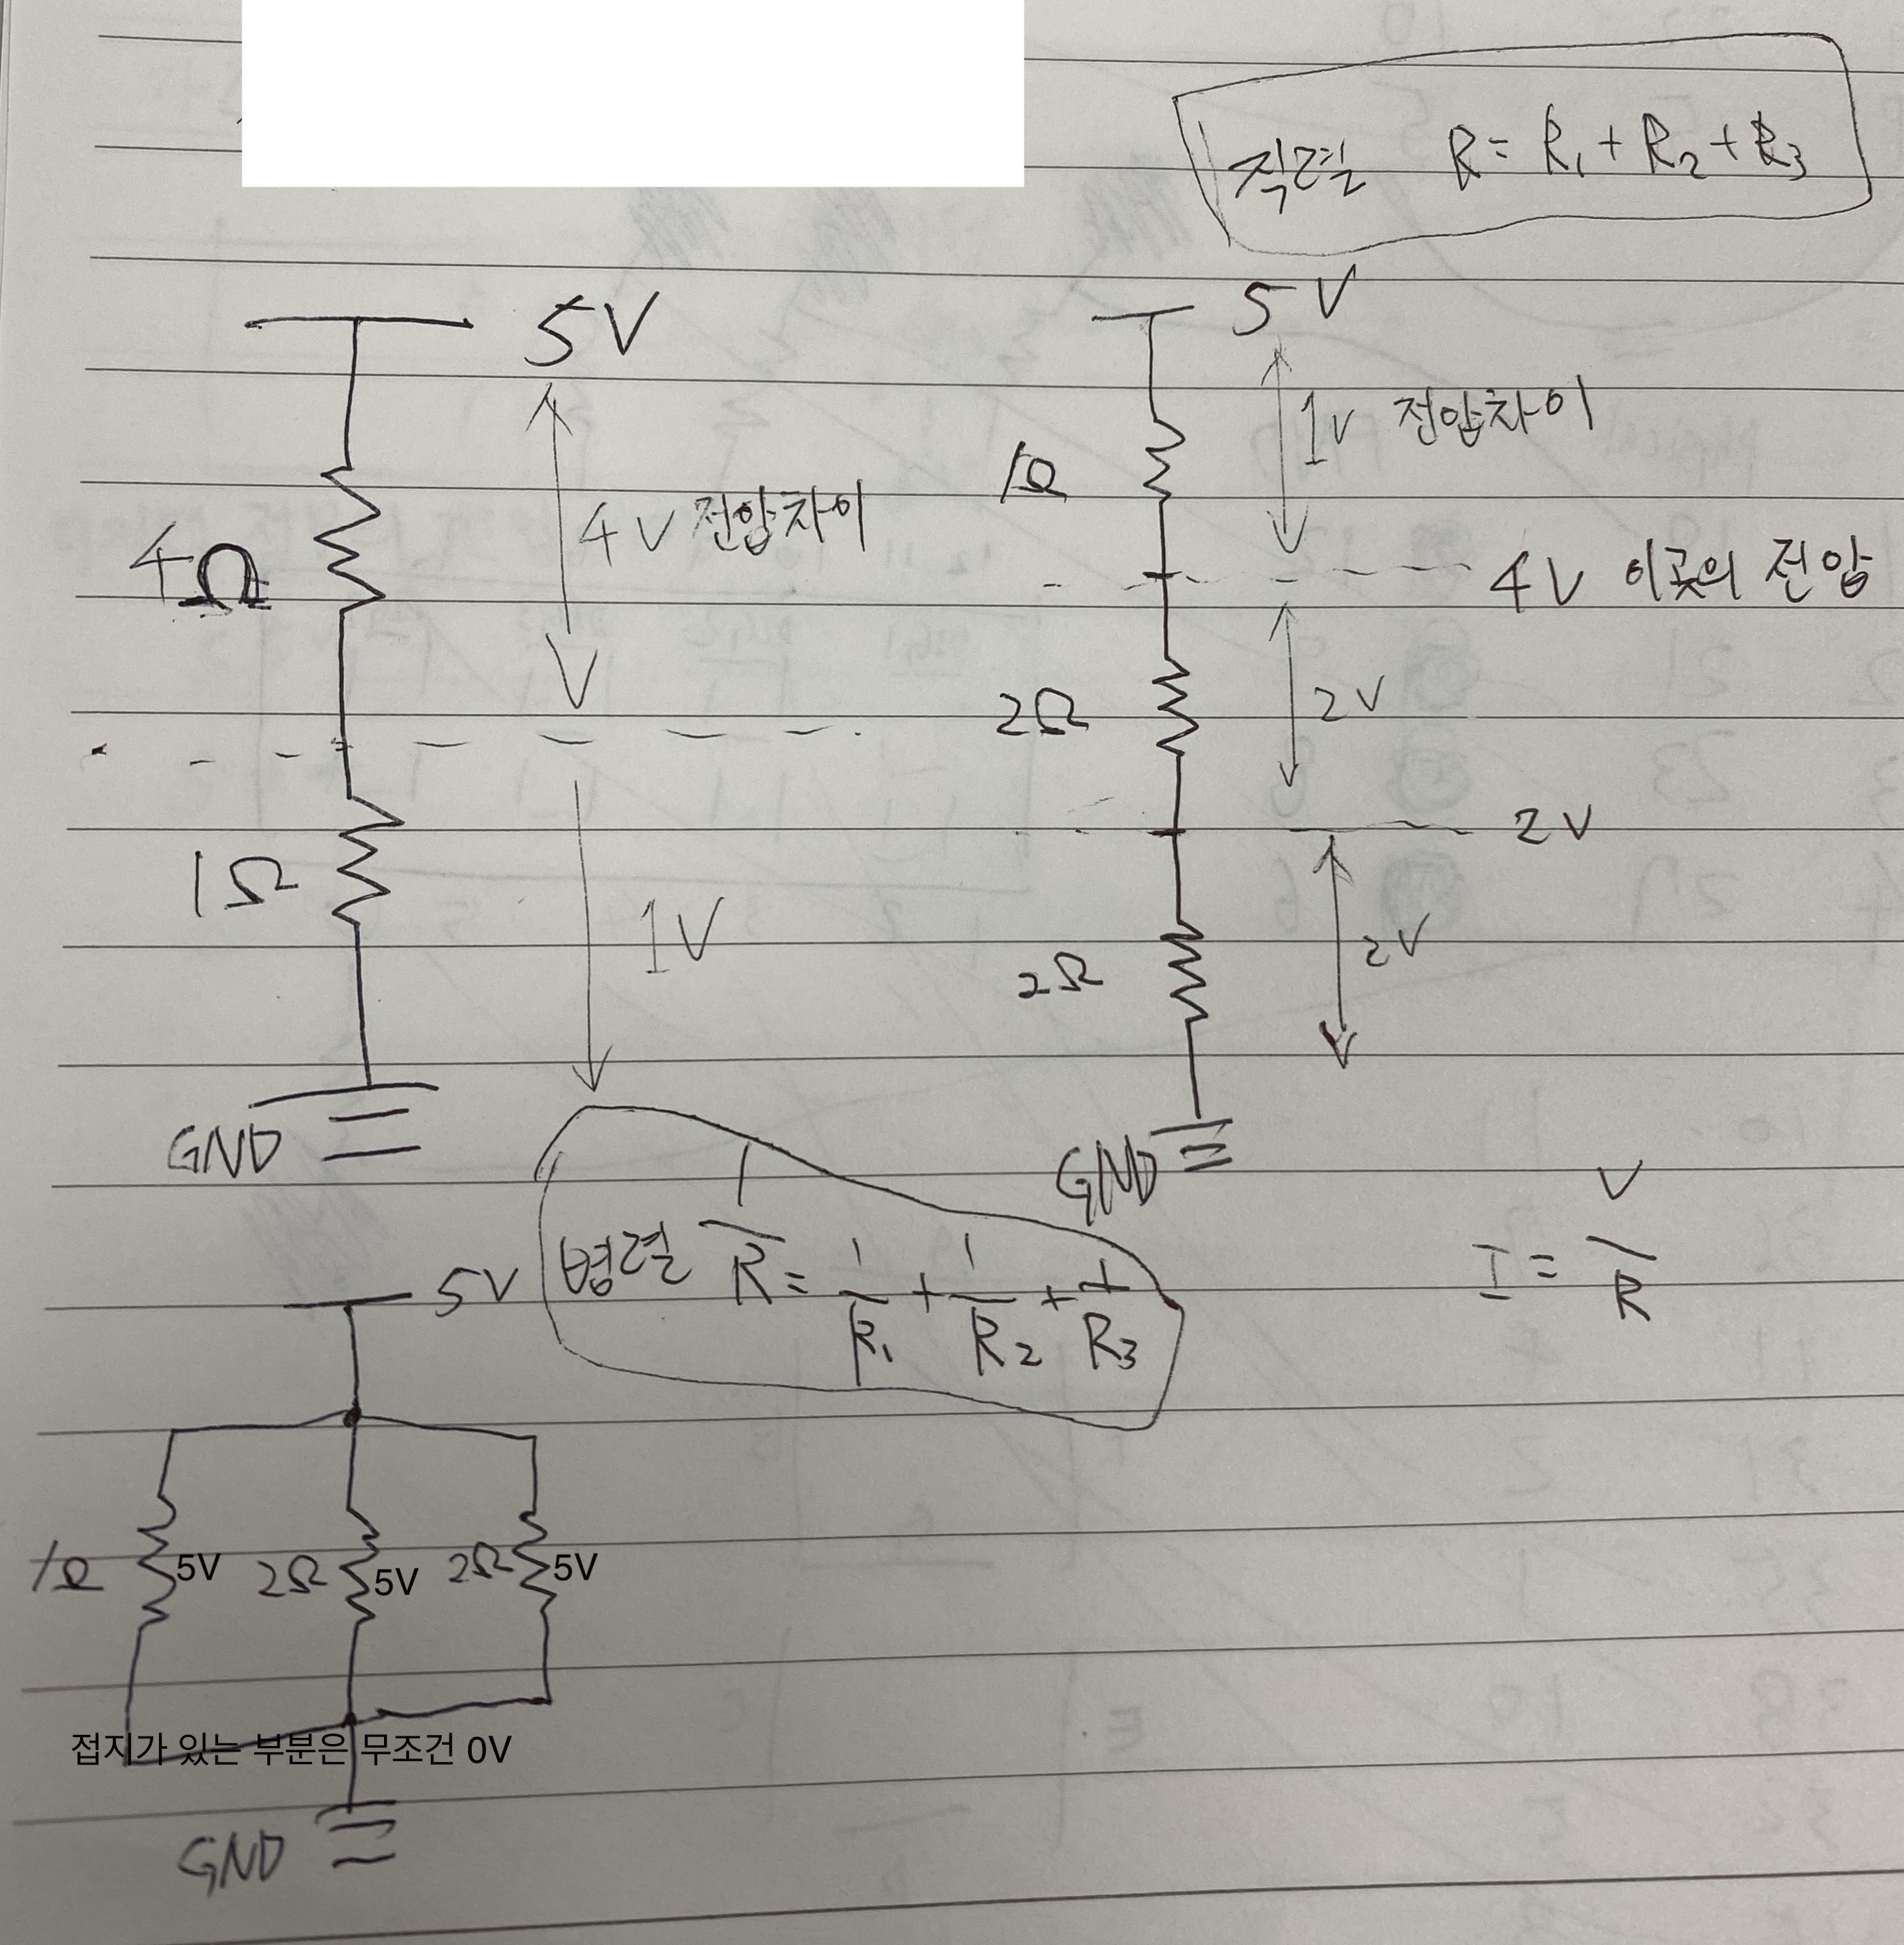 직렬 R = R₁ + R₂ + R₃
5V
4Ω
4V 전압차이
1Ω
1V
GND
5V
1Ω
1V 전압차이
4V 이곳의 전압
2Ω
2V
2V
2Ω
2V
GND
병렬 1/R = 1/R₁ + 1/R₂ + 1/R₃
I = V/R
5V
1Ω 5V 2Ω 5V 2Ω 5V
접지가 있는 부분은 무조건 0V
GND